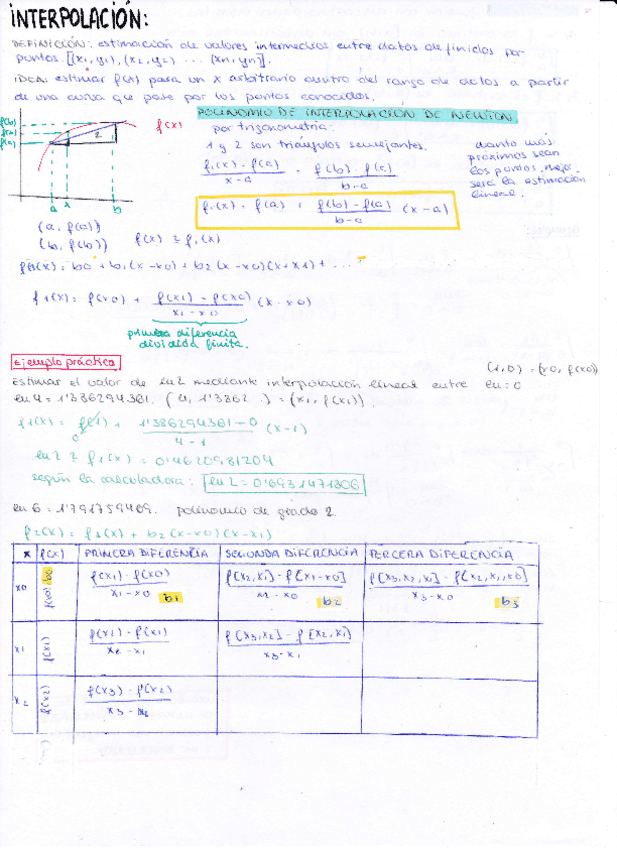 INTERPOLACIÓN:
DEFINICIÓN: estimación de valores intermedios entre datos definidos por
puntos [(x1, y1), (x2, y2) ... (xn, yn)].
IDEA: estimar f(x) para un x arbitrario dentro del rango de datos a partir
de una curva que pase por los puntos conocidos.
POLINOMIO DE INTERPOLACIÓN DE NEWTON
f(b)
f(x)
f(a)
f(x)
a x b
por trigonometría:
1 y 2 son triángulos semejantes.
cuanto más
próximos sean
los puntos, mejor
será la estimación
lineal.
f1(x) - f(a) / x - a = f(b) - f(a) / b - a
f1(x) = f(a) + f(b) - f(a) / b - a (x - a)
(a, f(a))
(b, f(b))
f(x) ≅ f1(x)
fn(x) = b0 + b1(x-x0) + b2(x-x0)(x+x1) + ...
f1(x) = f(x0) + f(x1) - f(x0) / x1 - x0 (x-x0)
primera diferencia
dividida finita.
Ejemplo práctico
(1,0) = (x0, f(x0))
Estimar el valor de ln2 mediante interpolación lineal entre ln = 0
ln 4 = 1'386294361. (4, 1'3862...) = (x1, f(x1)).
f1(x) = f(1) + 1'386294361 - 0 / 4 - 1 (x-1)
0
ln 2 ≅ f1(x) = 0'4620981204
según la calculadora: ln 2 = 0'6931471806
ln 6 = 1'791759469. polinomio de grado 2.
f2(x) = f1(x) + b2(x-x0)(x-x1)
x f(x) PRIMERA DIFERENCIA SEGUNDA DIFERENCIA TERCERA DIFERENCIA
x0 f(x0) b0 f(x1) - f(x0) / x1 - x0 b1 f[x2, x1] - f[x1-x0] / x2 - x0 b2 f[x3, x2, x1] - f[x2, x1, x0] / x3 - x0 b3
x1 f(x1) f(x2) - f(x1) / x2 - x1 f[x3, x2] - f[x2, x1] / x3 - x1
x2 f(x2) f(x3) - f(x2) / x3 - x2